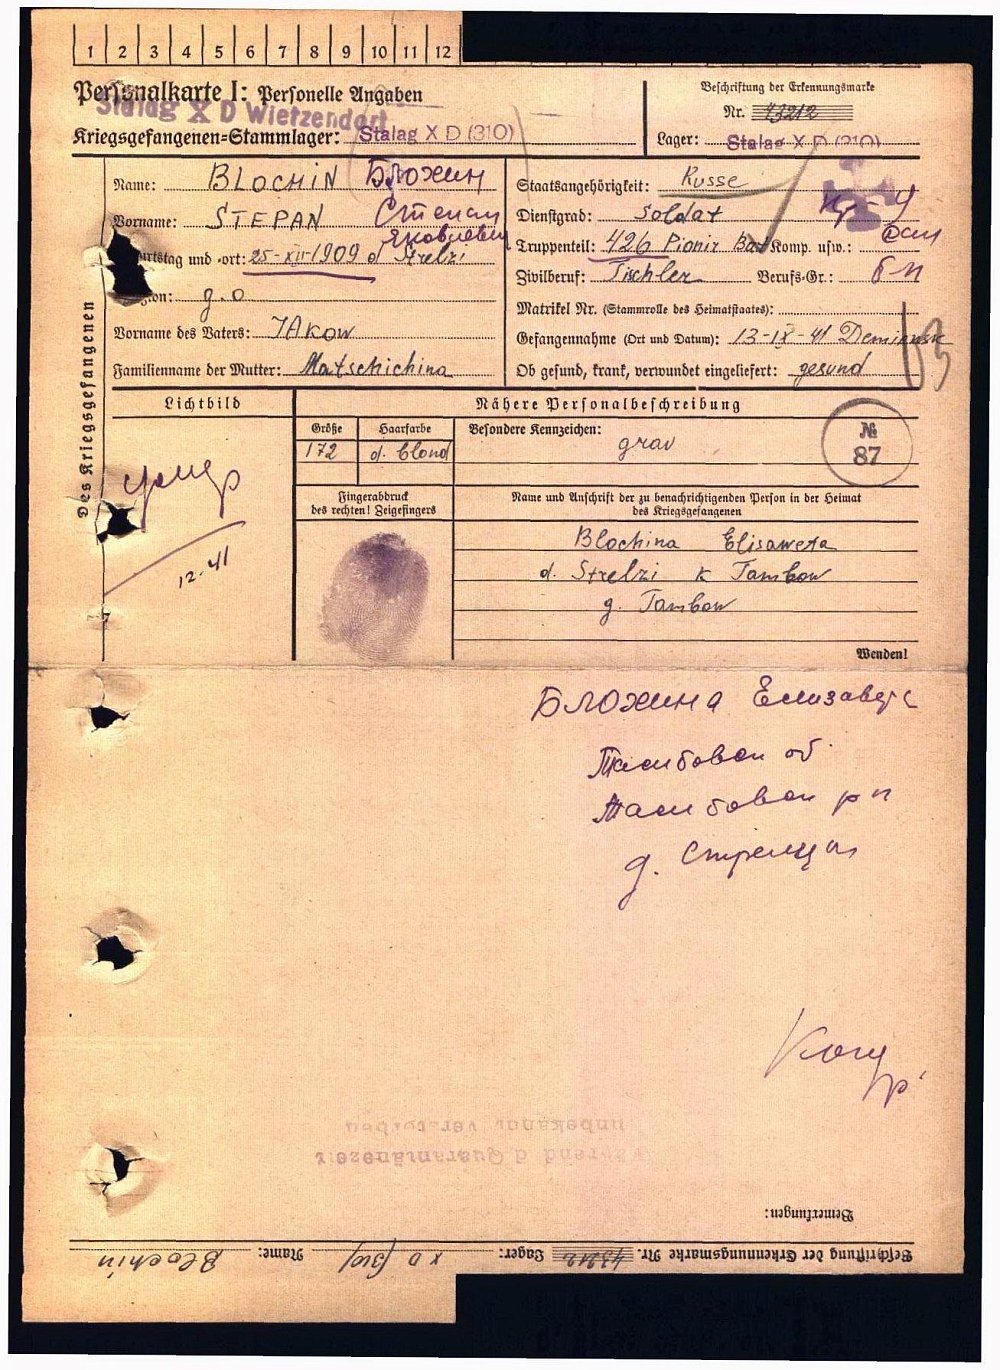 1 2 3 4 5 6 7 8 9 10 11 12
Personalkarte I: Personelle Angaben
Stalag X D Wietzendorf
Kriegsgefangenen-Stammlager: Stalag X D (310)
Beschriftung der Erkennungsmarke
Nr. 43212
Lager: Stalag X D (310)
Des Kriegsgefangenen
Name: BLOCHIN Блохин
Vorname: STEPAN Степан
Яковлевич
und -ort: 25-XII-1909 d Strelzi
g.o
Vorname des Vaters: JAKow
Familienname der Mutter: Matschichina
Staatsangehörigkeit: Russe
Dienstgrad: Soldat
Truppenteil: 426 Pionir Bat Komp. usw.:
Zivilberuf: Tischler Berufs-Gr.:
Matrikel Nr. (Stammrolle des Heimatstaates):
Gefangennahme (Ort und Datum): 13-IX-41 Deminsk
Ob gesund, krank, verwundet eingeliefert: gesund
Lichtbild
умер
12-41
Nähere Personalbeschreibung
Größe Haarfarbe Besondere Kennzeichen:
172 d. blond grau
№
87
Fingerabdruck
des rechten! Zeigefingers
Name und Anschrift der zu benachrichtigenden Person in der Heimat
des Kriegsgefangenen
Blochina Elisaweta
d. Strelzi K Tambow
g. Tambow
Wenden!
Блохина Елизавета
Тамбовск об
Тамбовск р н
д. Стрельцы
während d Quarantänezeit
unbekannt verstorben
Bemerkungen:
Beschriftung der Erkennungsmarke Nr. 43212 Lager: X D (310) Name: Blochin